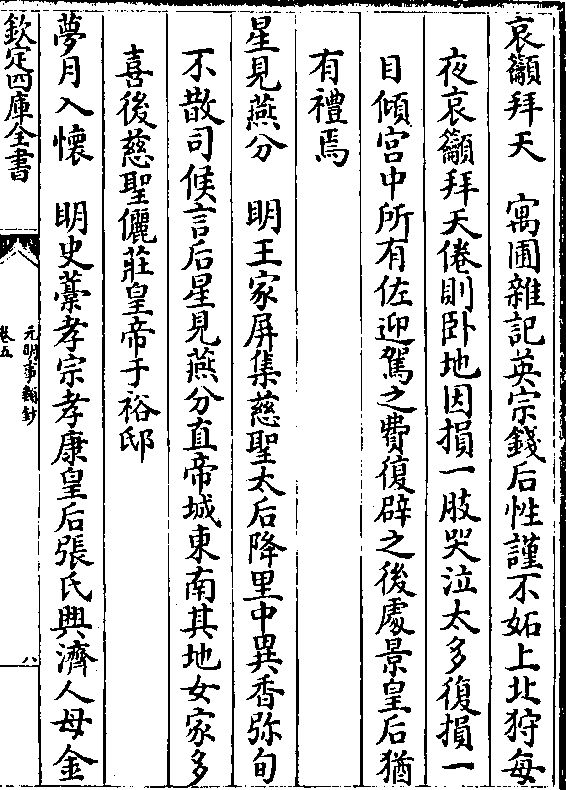 哀籲拜天　寓圃雜記英宗錢后性謹不妬上北狩每
夜哀籲拜天倦則卧地因損一肢哭泣太多復損一
目傾宫中所有佐迎駕之費復辟之後處景皇后猶
有禮焉
星見燕分　明王家屏集慈聖太后降里中異香弥旬
不散司候言后星見燕分直帝城東南其地女家多
喜後慈聖儷莊皇帝于裕邸
夢月入懷　明史藁孝宗孝康皇后張氏興濟人母金
欽定四庫全書
元明事類鈔
卷五
八